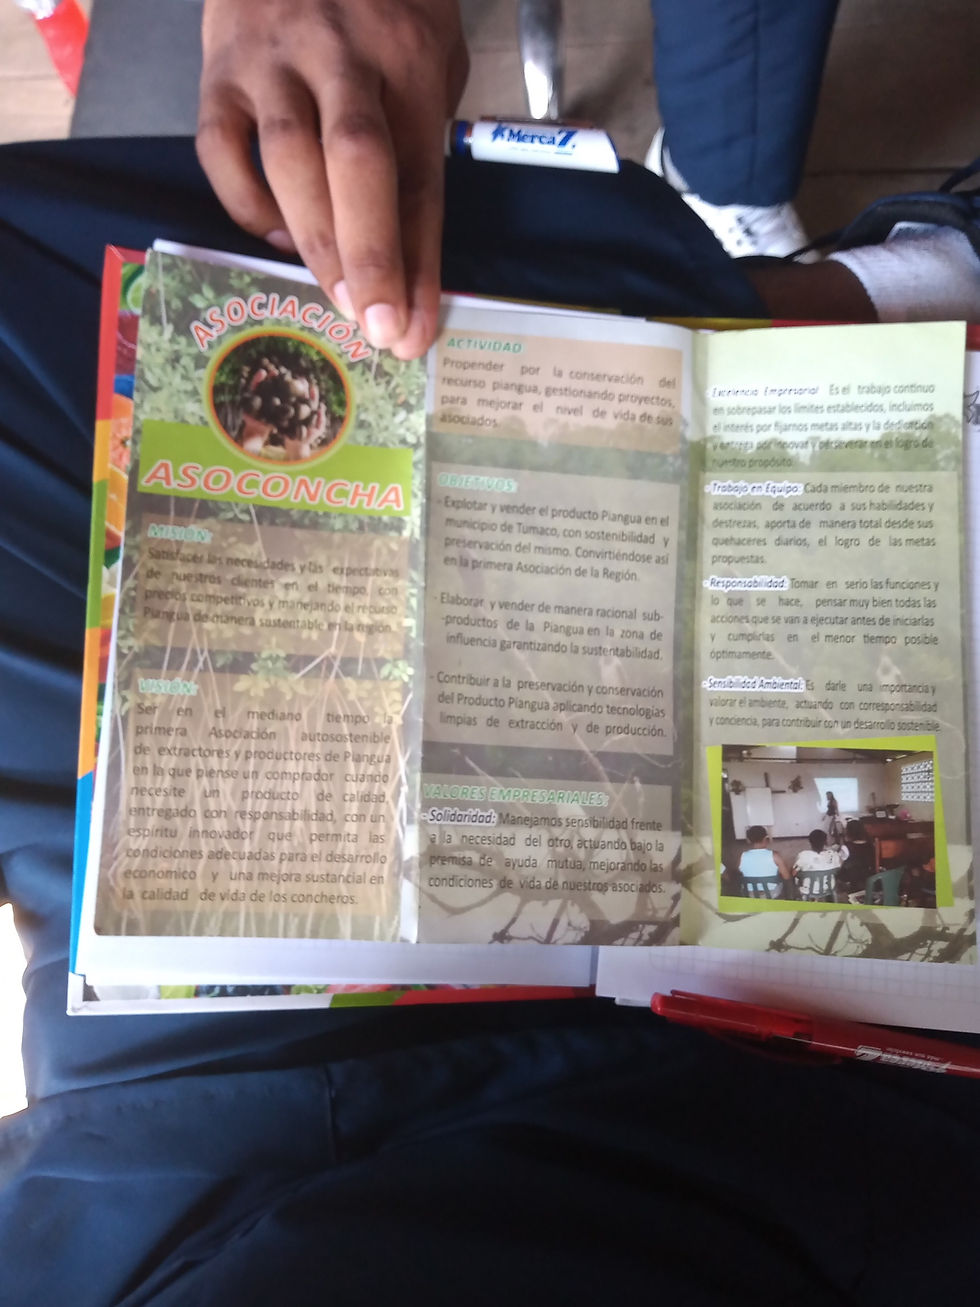 Merca Z
ASOCIACIÓN
ASOCONCHA
MISIÓN:
Satisfacer las necesidades y las expectativas
de nuestros clientes en el tiempo, con
precios competitivos y manejando el recurso
Piangua de manera sustentable en la región.
VISIÓN:
Ser en el mediano tiempo la
primera Asociación autosostenible
de extractores y productores de Piangua
en la que piense un comprador cuando
necesite un producto de calidad,
entregado con responsabilidad, con un
espíritu innovador que permita las
condiciones adecuadas para el desarrollo
economico y una mejora sustancial en
la calidad de vida de los concheros.
ACTIVIDAD
Propender por la conservación del
recurso piangua, gestionando proyectos,
para mejorar el nivel de vida de sus
asociados.
OBJETIVOS:
- Explotar y vender el producto Piangua en el
municipio de Tumaco, con sostenibilidad y
preservación del mismo. Convirtiéndose así
en la primera Asociación de la Región.
- Elaborar y vender de manera racional sub-
-productos de la Piangua en la zona de
influencia garantizando la sustentabilidad.
- Contribuir a la preservación y conservación
del Producto Piangua aplicando tecnologías
limpias de extracción y de producción.
VALORES EMPRESARIALES:
- Solidaridad: Manejamos sensibilidad frente
a la necesidad del otro, actuando bajo la
premisa de ayuda mutua, mejorando las
condiciones de vida de nuestros asociados.
- Excelencia Empresarial Es el trabajo continuo
en sobrepasar los límites establecidos, incluimos
el interés por fijarnos metas altas y la dedicación
y entrega por innovar y perseverar en el logro de
nuestro propósito.
- Trabajo en Equipo: Cada miembro de nuestra
asociación de acuerdo a sus habilidades y
destrezas, aporta de manera total desde sus
quehaceres diarios, el logro de las metas
propuestas.
- Responsabilidad: Tomar en serio las funciones y
lo que se hace, pensar muy bien todas las
acciones que se van a ejecutar antes de iniciarlas
y cumplirlas en el menor tiempo posible
óptimamente.
- Sensibilidad Ambiental: Es darle una importancia y
valorar el ambiente, actuando con corresponsabilidad
y conciencia, para contribuir con un desarrollo sostenible